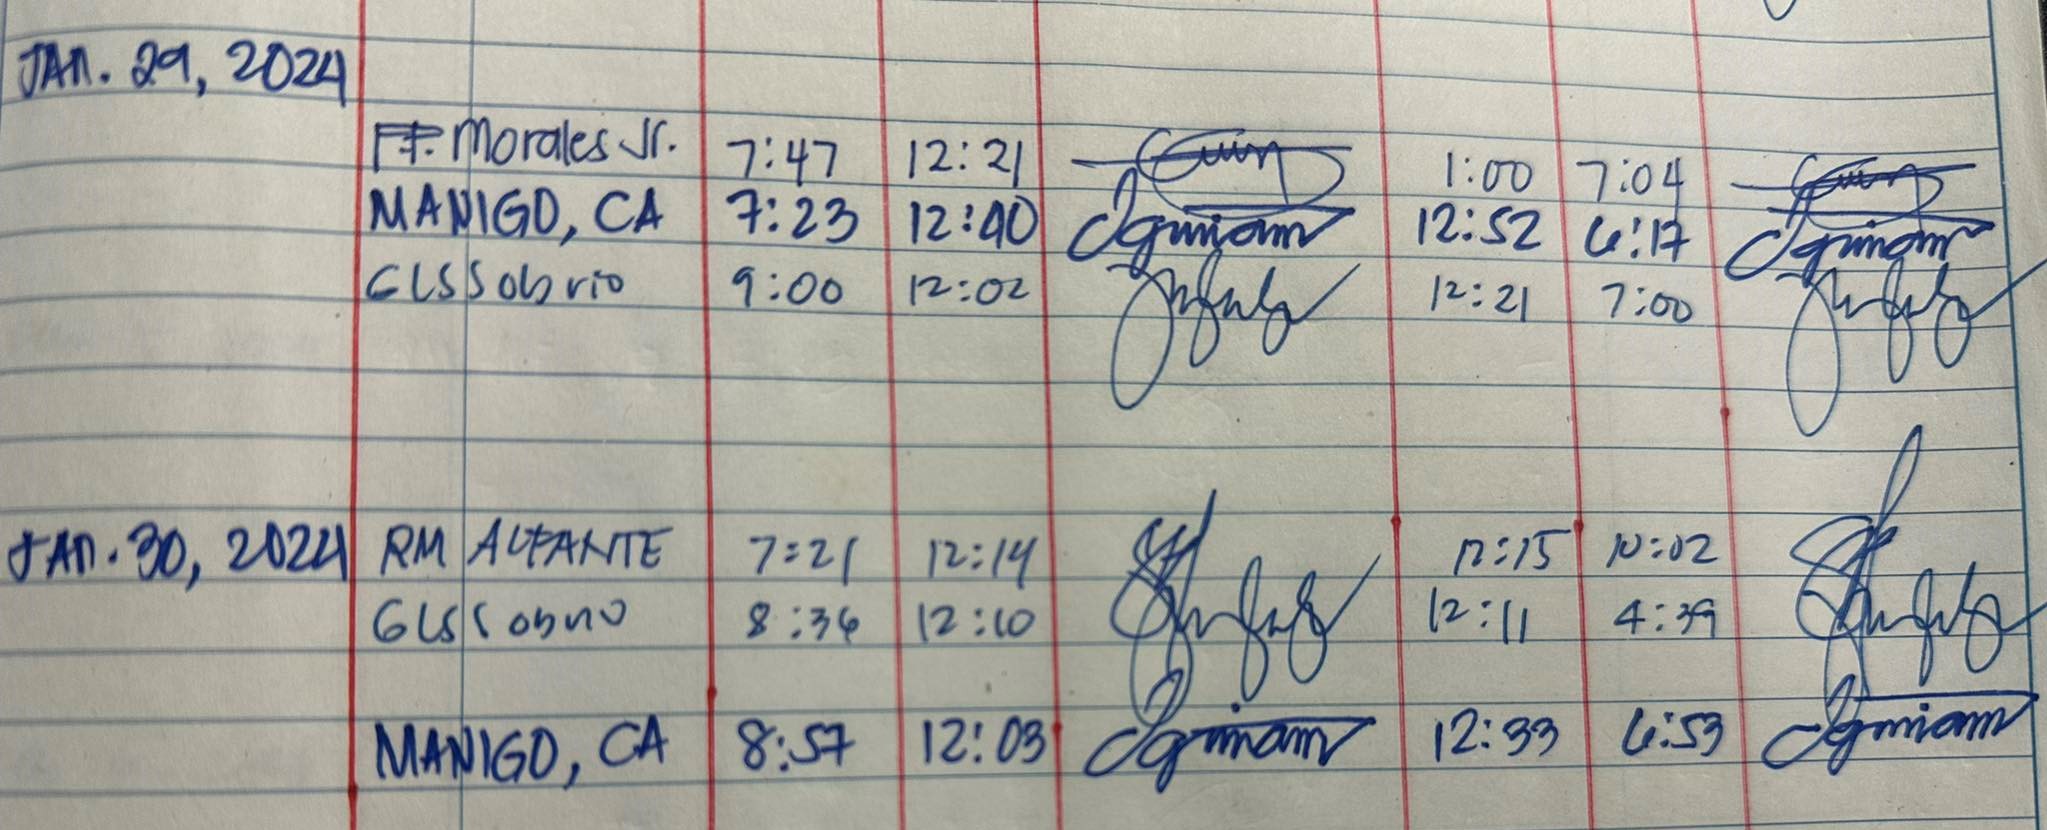 JAN. 29, 2024
FF. Morales Jr. 7:47 12:21 1:00 7:04
MANIGO, CA 7:23 12:40 12:52 6:17
GLSSobrio 9:00 12:02 12:21 7:00
JAN. 30, 2024 RM ALFANTE 7:21 12:14 12:15 10:02
GLSSobrio 8:36 12:10 12:11 4:39
MANIGO, CA 8:57 12:03 12:33 6:53